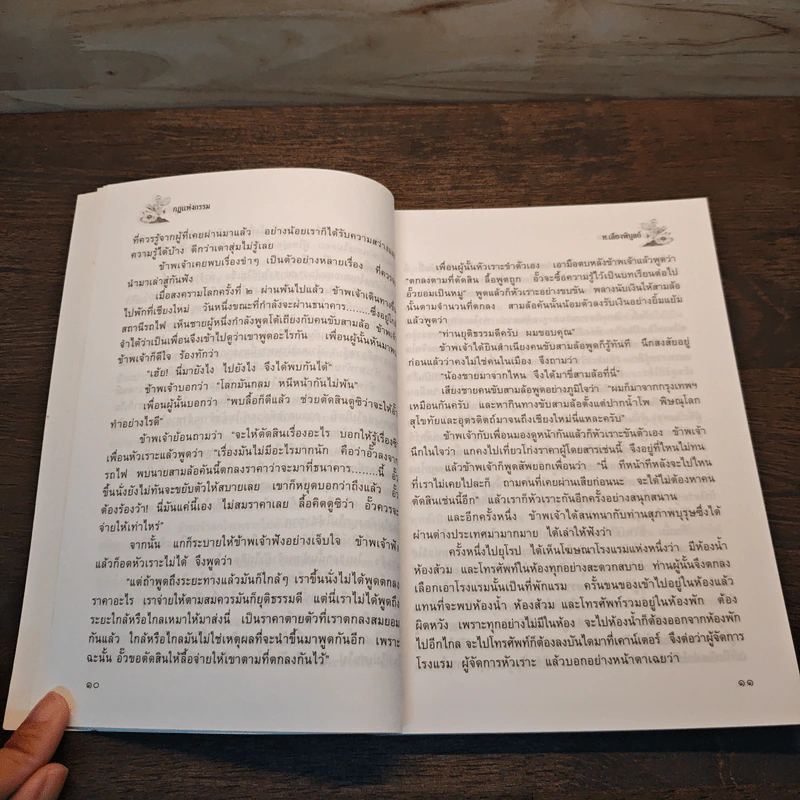 กฎแห่งกรรม
ที่ควรรู้จากผู้ที่เคยผ่านมาแล้ว อย่างน้อยเราก็ได้รับความสว่าง
ความรู้ได้บ้าง ดีกว่าเดาสุ่มไม่รู้เลย
ข้าพเจ้าเคยพบเรื่องขำๆ เป็นตัวอย่างหลายเรื่อง ที่ควร
นำมาเล่าสู่กันฟัง
เมื่อสงครามโลกครั้งที่ ๒ ผ่านพ้นไปแล้ว ข้าพเจ้าเดินทางขึ้น
ไปพักที่เชียงใหม่ วันหนึ่งขณะที่กำลังจะผ่านธนาคาร........ซึ่งอยู่ใกล้
สถานีรถไฟ เห็นชายผู้หนึ่งกำลังพูดโต้เถียงกับคนขับสามล้อ ข้าพเจ้า
จำได้ว่าเป็นเพื่อนจึงเข้าไปดูว่าเขาพูดอะไรกัน เพื่อนผู้นั้นหันมาพบ
ข้าพเจ้าก็ดีใจ ร้องทักว่า
"เฮ้ย! นี่มายังไง ไปยังไง จึงได้พบกันได้"
ข้าพเจ้าบอกว่า "โลกมันกลม หนีหน้ากันไม่พ้น"
เพื่อนผู้นั้นบอกว่า "พบลื้อก็ดีแล้ว ช่วยตัดสินดูซิว่าจะให้อั๊ว
ทำอย่างไรดี"
ข้าพเจ้าย้อนถามว่า "จะให้ตัดสินเรื่องอะไร บอกให้รู้เรื่องซิ"
เพื่อนหัวเราะแล้วพูดว่า "เรื่องมันไม่มีอะไรมากนัก คือว่าอั๊วลงจาก
รถไฟ พบนายสามล้อคันนี้ตกลงราคาว่าจะมาที่ธนาคาร........นี้ อั๊ว
ขึ้นนั่งยังไม่ทันจะขยับตัวให้สบายเลย เขาก็หยุดบอกว่าถึงแล้ว อั๊ว
ต้องร้องว้า! นี่มันแค่นี้เอง ไม่สมราคาเลย ลื้อคิดดูซิว่า อั๊วควรจะ
จ่ายให้เท่าไหร่"
จากนั้น แกก็ระบายให้ข้าพเจ้าฟังอย่างเจ็บใจ ข้าพเจ้าฟัง
แล้วก็อดหัวเราะไม่ได้ จึงพูดว่า
"แต่ถ้าพูดถึงระยะทางแล้วมันก็ใกล้ๆ เราขึ้นนั่งไม่ได้พูดตกลง
ราคาอะไร เราจ่ายให้ตามสมควรมันก็ยุติธรรมดี แต่นี่เราไม่ได้พูดถึง
ระยะใกล้หรือไกลเหมาให้มาส่งนี่ เป็นราคาตายตัวที่เราตกลงสมยอม
กันแล้ว ใกล้หรือไกลมันไม่ใช่เหตุผลที่จะนำขึ้นมาพูดกันอีก เพราะ
ฉะนั้น อั๊วขอตัดสินให้ลื้อจ่ายให้เขาตามที่ตกลงกันไว้"
๑๐
ท.เลียงพิบูลย์
เพื่อนผู้นั้นหัวเราะขำตัวเอง เอามือตบหลังข้าพเจ้าแล้วพูดว่า
"ตกลงตามที่ตัดสิน ลื้อพูดถูก อั๊วจะซื้อความรู้ไว้เป็นบทเรียนต่อไป
อั๊วยอมเป็นหมู" พูดแล้วก็หัวเราะอย่างขบขัน พลางนับเงินให้สามล้อ
นั้นตามจำนวนที่ตกลง สามล้อคันนั้นน้อมตัวลงรับเงินอย่างยิ้มแย้ม
แล้วพูดว่า
"ท่านยุติธรรมดีครับ ผมชอบคุณ"
ข้าพเจ้าได้ยินสำเนียงคนขับสามล้อพูดก็รู้ทันที นึกสงสัยอยู่
ก่อนแล้วว่าคงไม่ใช่คนในเมือง จึงถามว่า
"น้องชายมาจากไหน จึงได้มาขี่สามล้อที่นี่"
เสียงชายคนขับสามล้อพูดอย่างภูมิใจว่า "ผมก็มาจากกรุงเทพฯ
เหมือนกันครับ และหากินทางขับสามล้อตั้งแต่ปากน้ำโพ พิษณุโลก
สุโขทัยและอุตรดิตถ์มาจนถึงเชียงใหม่นี่แหละครับ"
ข้าพเจ้ากับเพื่อนมองดูหน้ากันแล้วก็หัวเราะขันตัวเอง ข้าพเจ้า
นึกในใจว่า แกคงไปเที่ยวโก่งราคาผู้โดยสารเช่นนี้ จึงอยู่ที่ไหนไม่ทน
แล้วข้าพเจ้าก็พูดสัพยอกเพื่อนว่า "นี่ ทีหน้าทีหลังจะไปไหน
ที่เราไม่เคยไปละก็ ถามคนที่เคยผ่านเสียก่อนนะ จะได้ไม่ต้องหาคน
ตัดสินเช่นนี้อีก" แล้วเราก็หัวเราะกันอีกครั้งอย่างสนุกสนาน
และอีกครั้งหนึ่ง ข้าพเจ้าได้สนทนากับท่านสุภาพบุรุษซึ่งได้
ผ่านต่างประเทศมามากมาย ได้เล่าให้ฟังว่า
ครั้งหนึ่งไปยุโรป ได้เห็นโฆษณาโรงแรมแห่งหนึ่งว่า มีห้องน้ำ
ห้องส้วม และโทรศัพท์ในห้องทุกอย่างสะดวกสบาย ท่านผู้นั้นจึงตกลง
เลือกเอาโรงแรมนั้นเป็นที่พักแรม ครั้นขนของเข้าไปอยู่ในห้องแล้ว
แทนที่จะพบห้องน้ำ ห้องส้วม และโทรศัพท์รวมอยู่ในห้องพัก ต้อง
ผิดหวัง เพราะทุกอย่างไม่มีในห้อง จะไปห้องน้ำก็ต้องออกจากห้องพัก
ไปอีกไกล จะไปโทรศัพท์ก็ต้องลงบันไดมาที่เคาน์เตอร์ จึงต่อว่าผู้จัดการ
โรงแรม ผู้จัดการหัวเราะ แล้วบอกอย่างหน้าตาเฉยว่า
๑๑